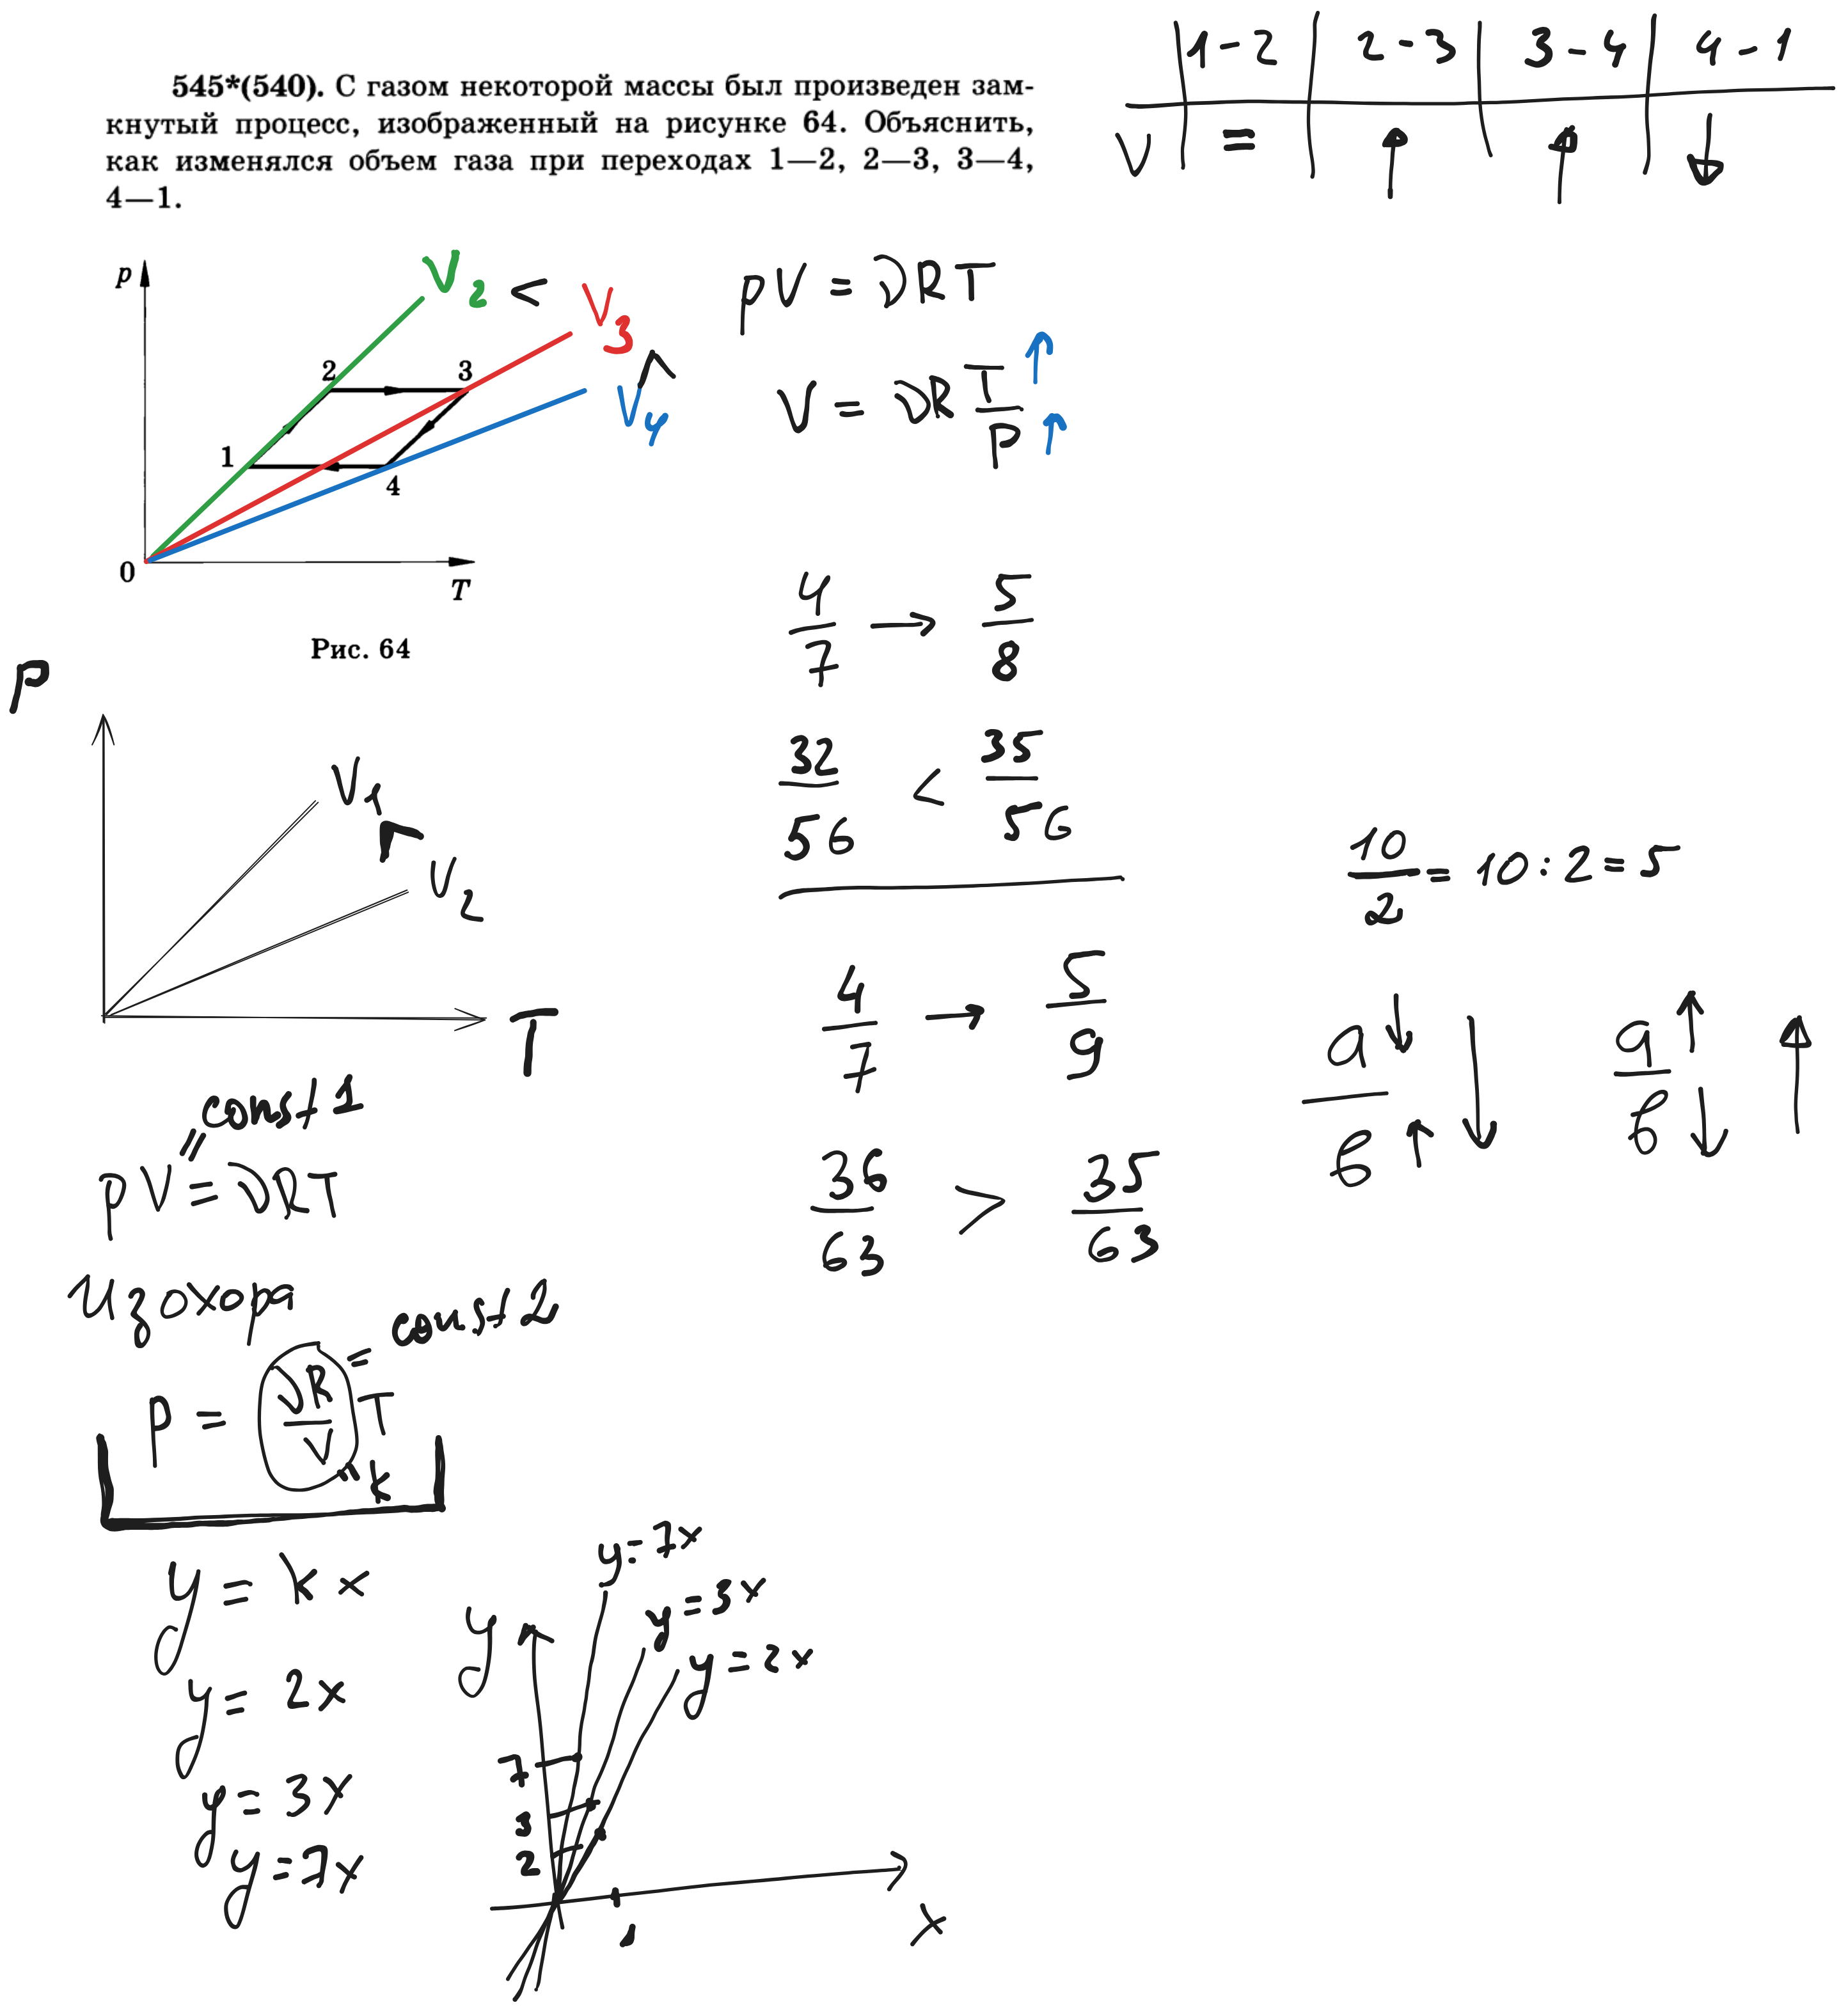 545*(540). С газом некоторой массы был произведен зам-
кнутый процесс, изображенный на рисунке 64. Объяснить,
как изменялся объем газа при переходах 1—2, 2—3, 3—4,
4—1.
1-2 2-3 3-4 4-1
V = ↑ ↑ ↓
p
V₂ < V₃
^
V₄
2 3
1 4
0 T
Рис. 64
pV = νRT
V = νR T/P ↑ ↑
4/7 → 5/8
32/56 < 35/56
4/7 → 5/9
36/63 > 35/63
10/2 = 10:2 = 5
a↓/b↑ ↓
a↑/b↓ ↑
P
V₁
^
V₂
T
= const 1
pV = νRT
Изохора
= const 2
P = νR/V T
= k
y = kx
y = 2x
y = 3x
y = 7x
y = 7x
y = 3x
y = 2x
y
7
3
2
1
x